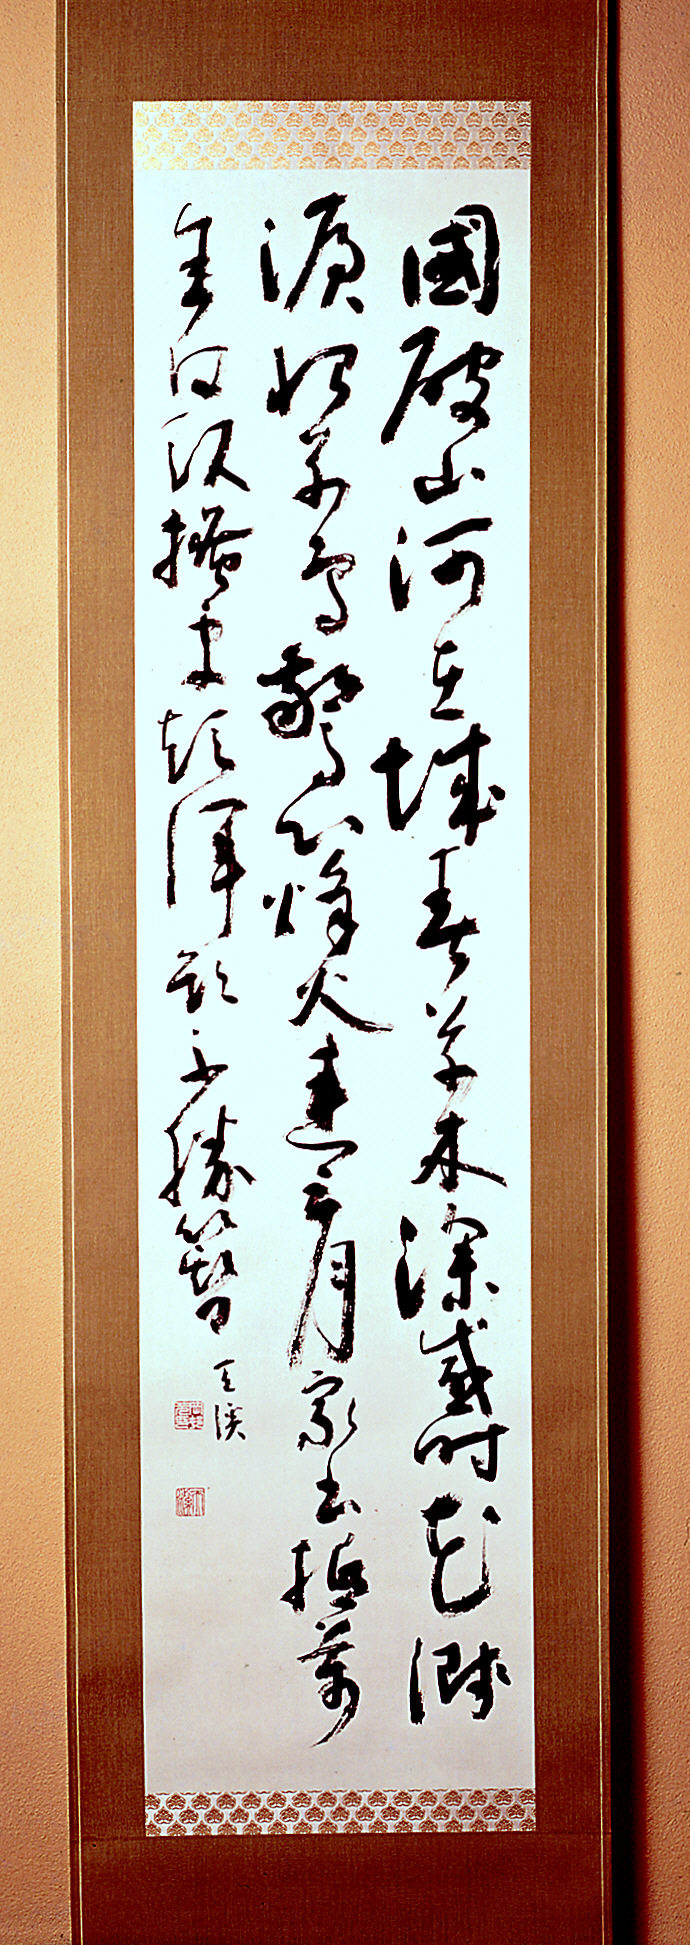 國破山河在城春草木深感時花濺
涙恨別鳥驚心烽火連三月家書抵萬
金白頭搔更短渾欲不勝簪
天溪